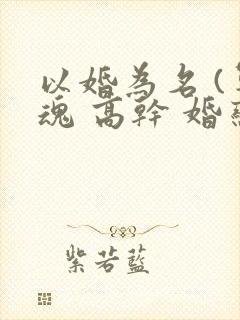 以婚為名(
魂 高幹 婚
紫若藍